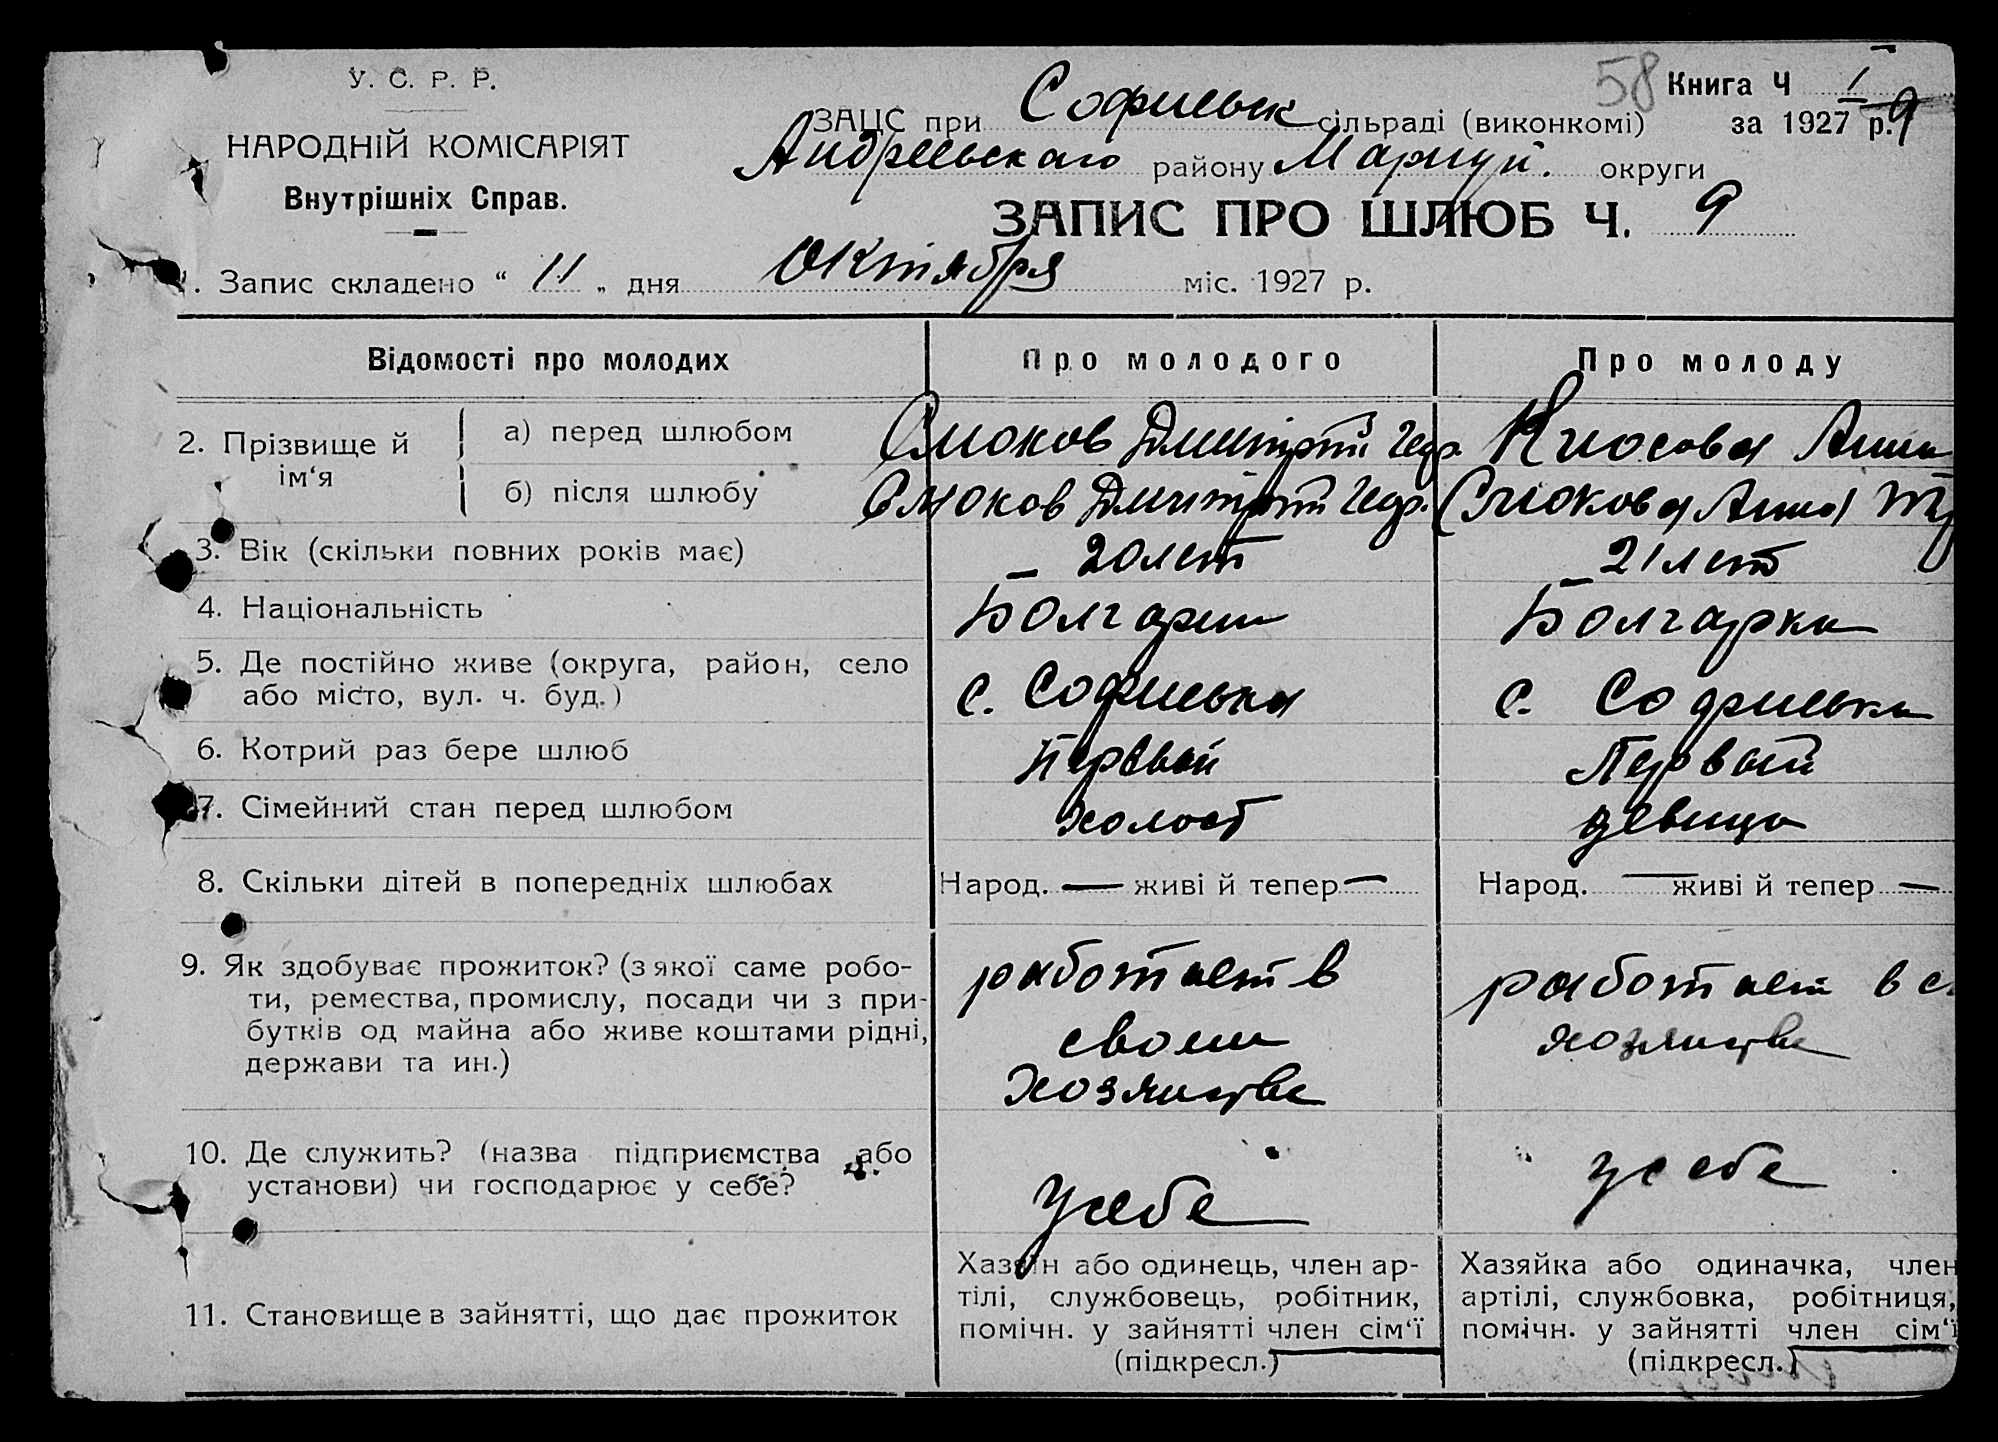 У. С. Р. Р.
НАРОДНІЙ КОМІСАРІЯТ
Внутрішніх Справ.
58 Книга Ч I
за 1927 р. 9
ЗАЦС при Софиевск сільраді (виконкомі)
Андреевскаго району Мариуп. округи
ЗАПИС ПРО ШЛЮБ Ч. 9
1. Запис складено “ 11 „ дня Октября міс. 1927 р.
Відомості про молодих Про молодого Про молоду
2. Прізвище й ім‘я
а) перед шлюбом Слюков Дмитрий Кіосова Анна
б) після шлюбу Слюков Дмитрий Слюкова Анна
3. Вік (скільки повних років має) – 20 лет – 21 лет
4. Національність Болгарин Болгарка
5. Де постійно живе (округа, район, село с. Софиевка с. Софиевка
або місто, вул. ч. буд.)
6. Котрий раз бере шлюб Первый Первый
7. Сімейний стан перед шлюбом холост девица
8. Скільки дітей в попередніх шлюбах Народ. — живі й тепер — Народ. — живі й тепер —
9. Як здобуває прожиток? (з якої саме робо-
ти, ремества, промислу, посади чи з при-
бутків од майна або живе коштами рідні,
держави та ин.)
работает в
своем
хозяистве
работает в с
хозяистве
10. Де служить? (назва підприємства або
установи) чи господарює у себе?
у себе у себе
11. Становище в зайнятті, що дає прожиток
Хазяїн або одинець, член ар-
тілі, службовець, робітник,
помічн. у зайнятті член сім‘ї
(підкресл.)
Хазяйка або одиначка, член
артілі, службовка, робітниця,
помічн. у зайнятті член сім‘ї
(підкресл.)